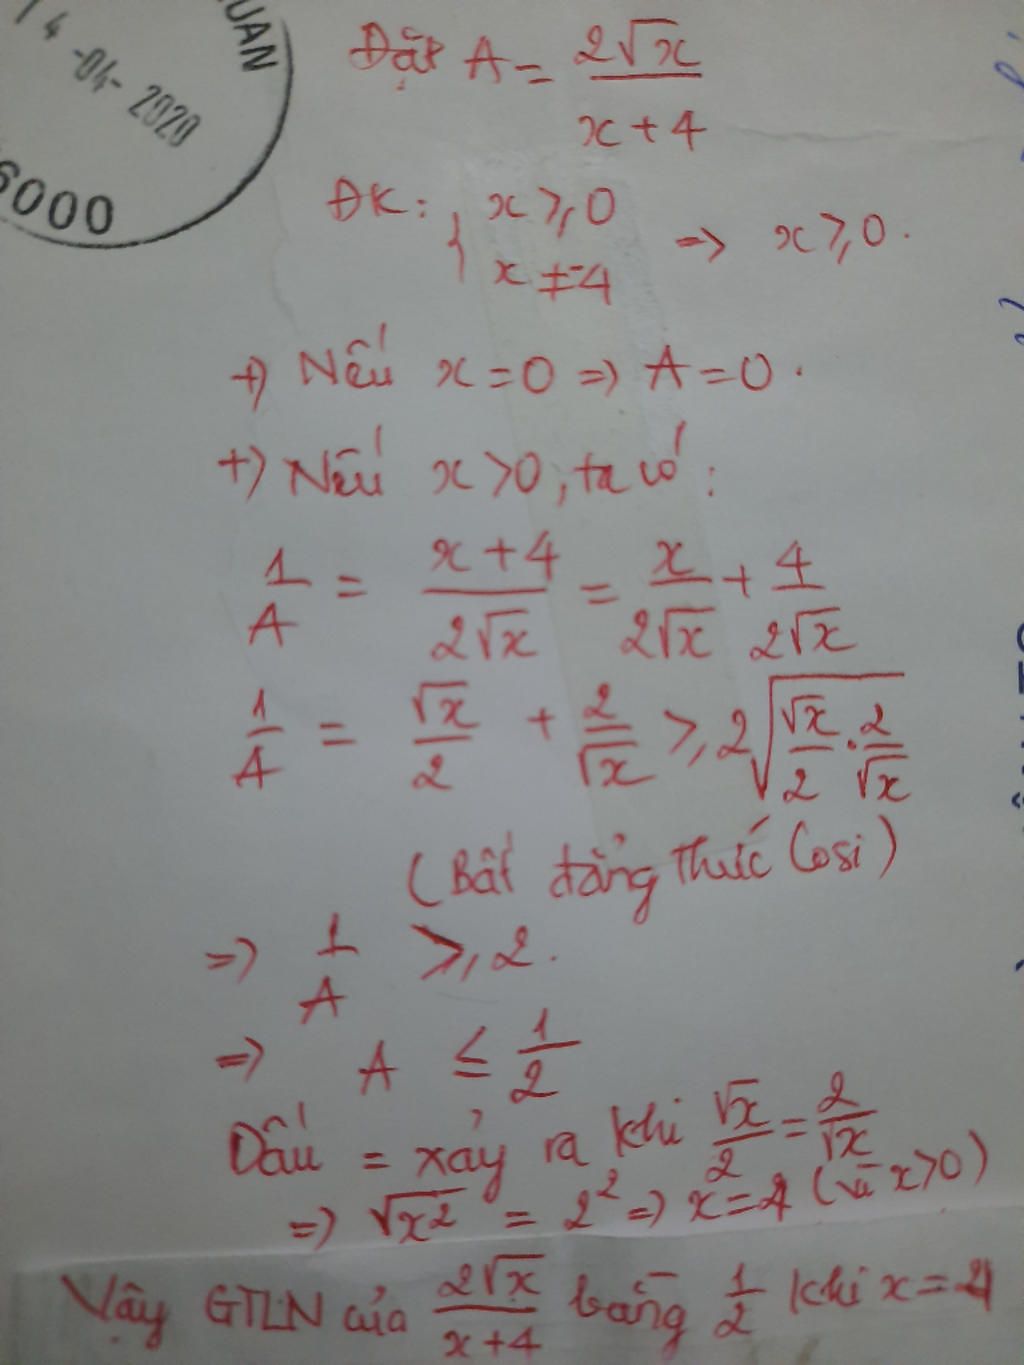 UAN
4 -04- 2020
6000
Đặt A = 2√x / x + 4
ĐK: { x ≥ 0
x ≠ -4 => x ≥ 0.
+) Nếu x = 0 => A = 0.
+) Nếu x > 0, ta có:
1/A = (x + 4)/(2√x) = x/(2√x) + 4/(2√x)
1/A = √x/2 + 2/√x ≥ 2√(√x/2 . 2/√x)
(Bất đẳng thức Cosi)
=> 1/A ≥ 2.
=> A ≤ 1/2
Dấu = xảy ra khi √x/2 = 2/√x
=> √x² = 2² => x = 4 (vì x > 0)
Vậy GTLN của 2√x/(x + 4) bằng 1/2 khi x = 4